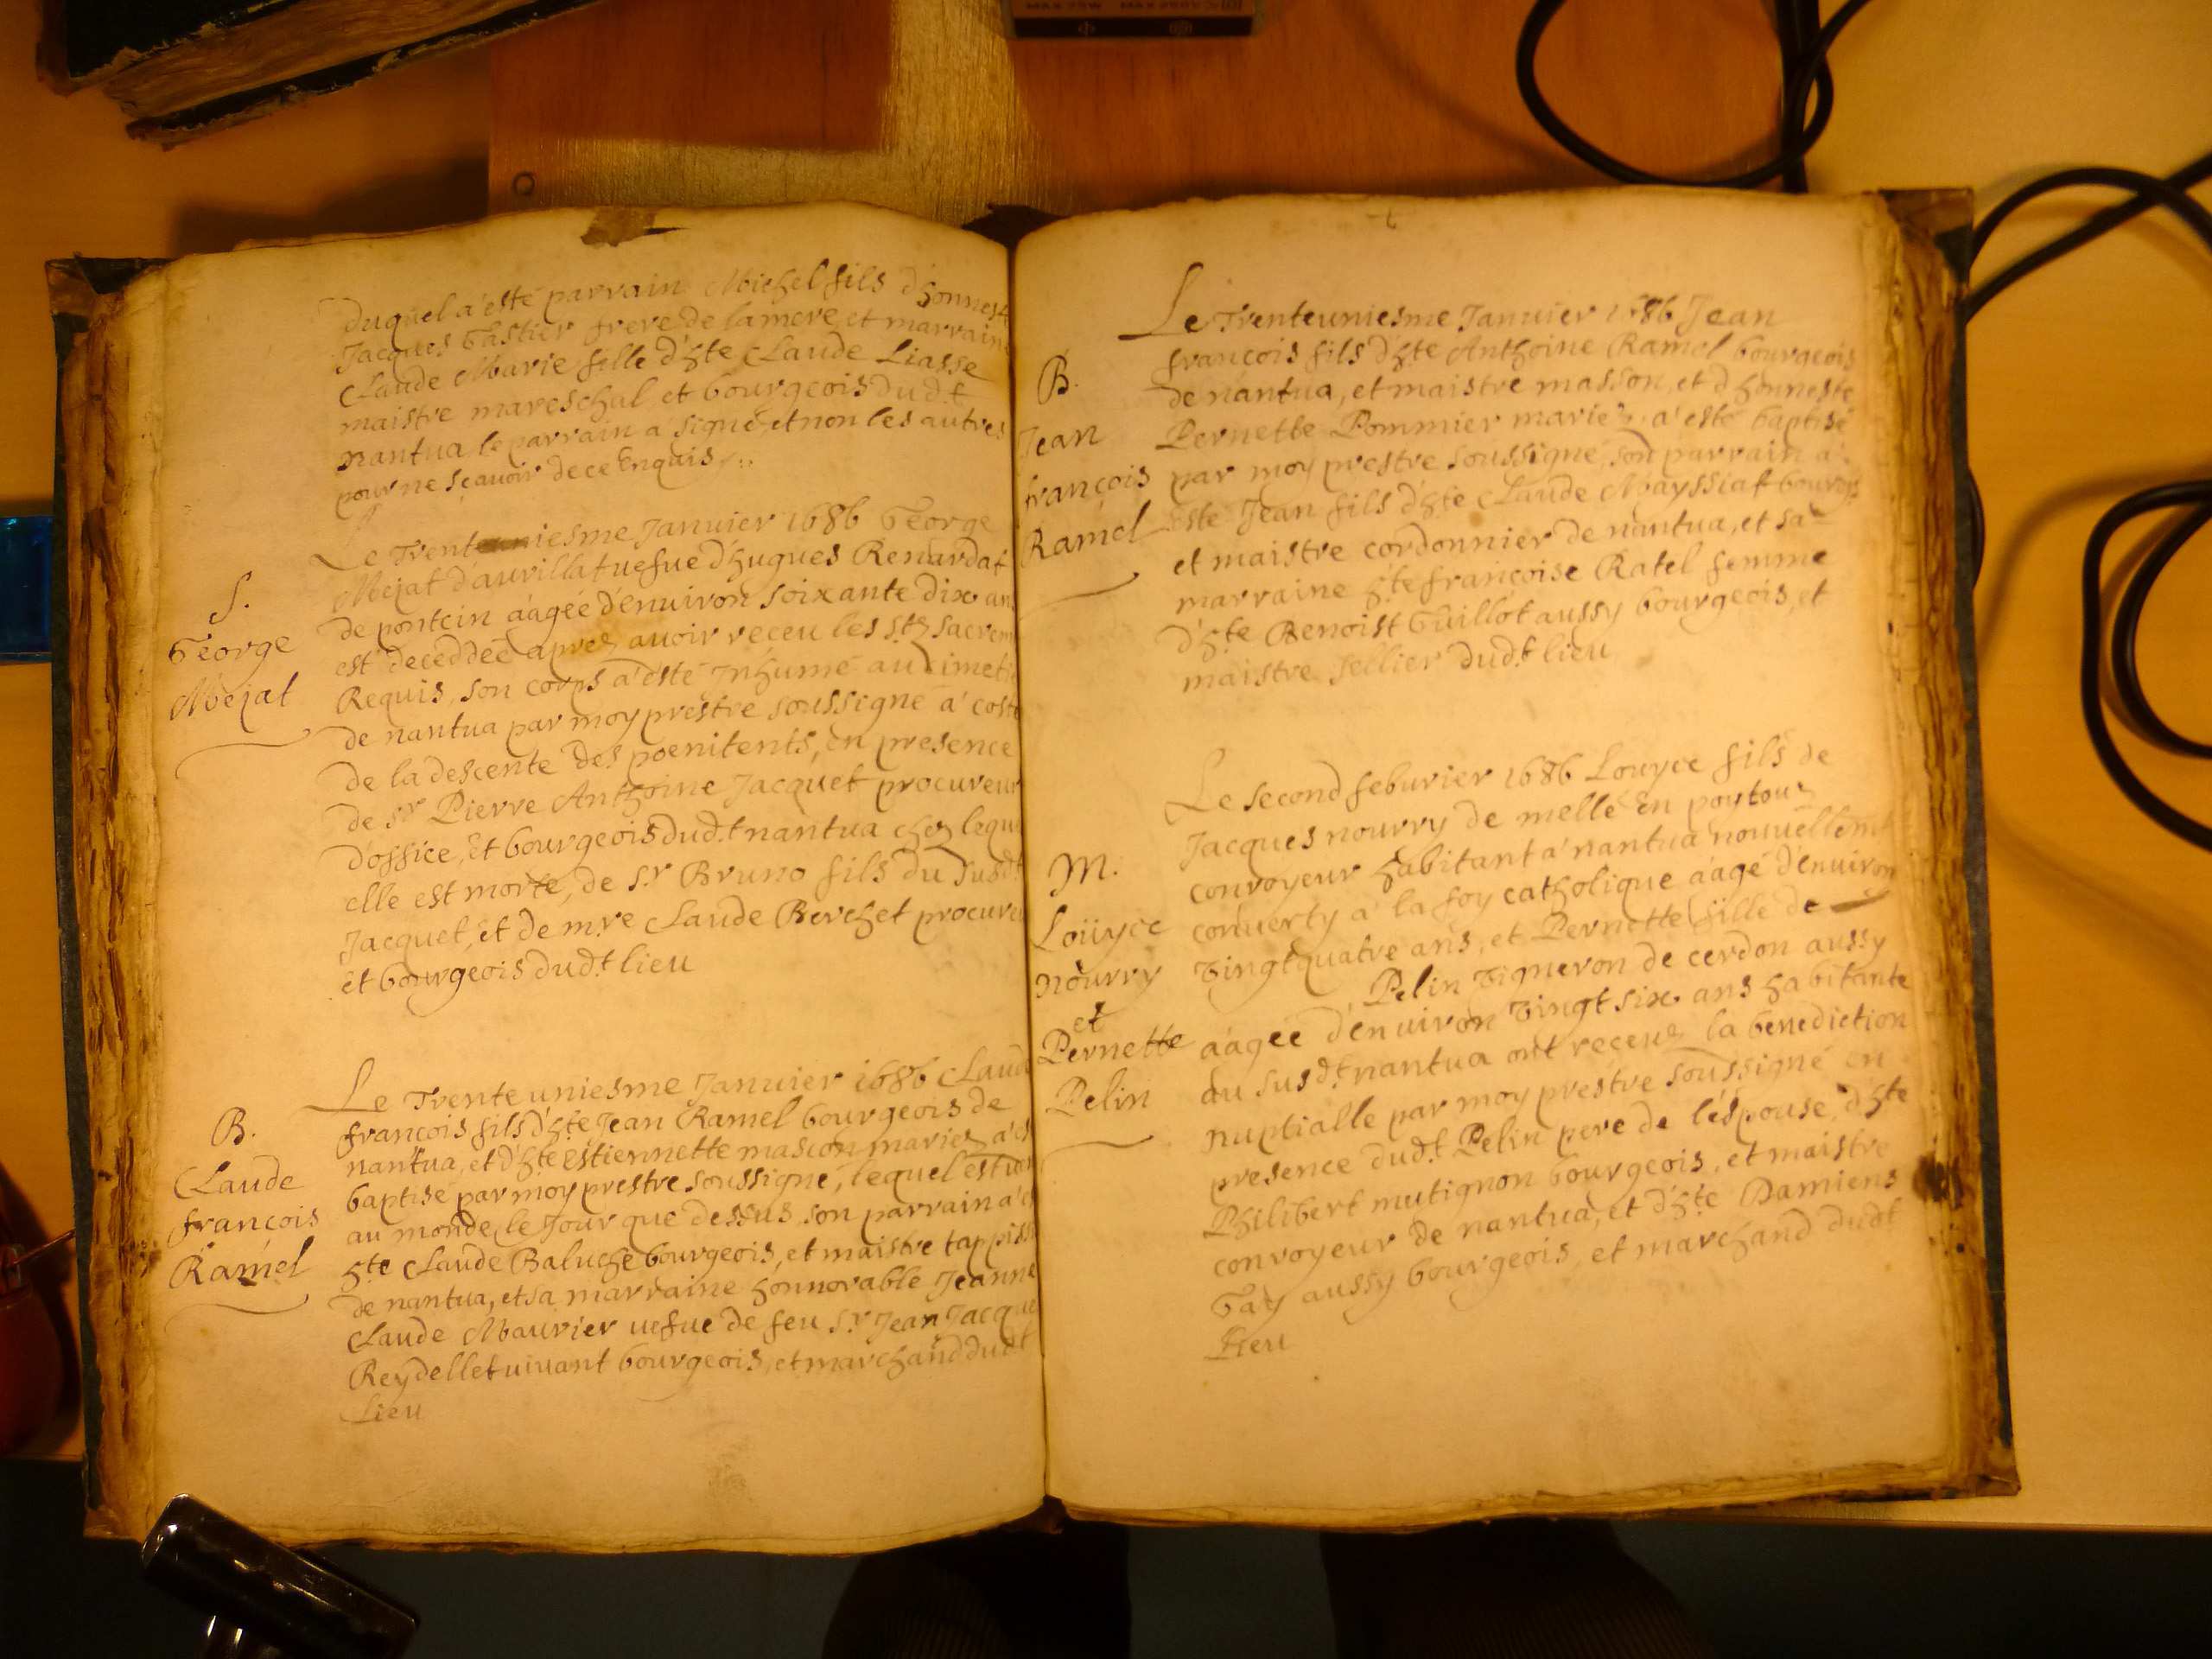 duquel a esté parrain Michel fils d'honneste
Jacques Gastier frere de la mere et marraine
Claude Marie fille d'hte Claude Liasse
maistre mareschal et bourgeois dud.t
nantua le parrain a signé, et non les autres
pour ne sçauoir de ce Enquis
S.
George
Mejat
Le Trent iesme Januier 1686 George
Mejat d'aurillat uefue d'hugues Renardat
de poncin aagée d'enuiron soixante dix ans
est deceddée aprez auoir receu les Stz sacrem
Requis, son corps a esté Inhumé au Cimeti
de nantua par moy prestre soussigné a costé
de la descente des poenitents, en presence
de sr Pierre Anthoine Jacquet procureur
d'office, Et bourgeois dud.t nantua chez leque
elle est morte, de s.r Bruno fils du susd.t
Jacquet, et de m.re Claude Berchet procureu
Et bourgeois dud.t lieu
B.
Claude
françois
Ramel
Le Trente uniesme Januier 1686 Claude
françois fils d'hte Jean Ramel bourgeois de
nantua, et d'hte Estiennette mascon mariez a es
baptisé par moy prestre soussigné, lequel est uen
au monde le Jour que dessus son parrain a e
hte Claude Baluche bourgeois, et maistre tappiss
de nantua, et sa marraine honnorable Jeanne
Claude Maurier uefue de feu S.r Jean Jacque
Reydellet uiuant bourgeois, et marchand dud.t
Lieu
B.
Jean
françois
Ramel
Le Trenteuniesme Januier 1686 Jean
françois fils d'hte Anthoine Ramel bourgeois
de nantua, et maistre masson, et d'honneste
Pernette Pommier mariez, a esté baptisé
par moy prestre soussigné, son parrain a
esté Jean fils d'hte Claude Mayssiat bourgois
et maistre cordonnier de nantua, et sa
marraine h.te françoise Ratel femme
d'hte Benoist Guillot aussy bourgeois, et
maistre sellier dud.t lieu
M.
Loüyce
nourry
et
Pernette
Pelin
Le second feburier 1686 Louyce fils de
Jacques nourry de mellé En poytouz
conroyeur habitant a nantua nouuellemt
conuerty a la foy catholique aagé d'enuiron
Vingtquatre ans, et Pernette fille de
Pelin Vigneron de cerdon aussy
aagée d'enuiron Vingt six ans habitante
au susd.t nantua ont receuz la benediction
nuptialle par moy prestre soussigné en
presence dud.t Pelin pere de l'espouse, d'hte
Philibert mutignon bourgeois, et maistre
conroyeur de nantua, et d'hte Damiens
Gay aussy bourgeois, et marchand dud.t
Lieu